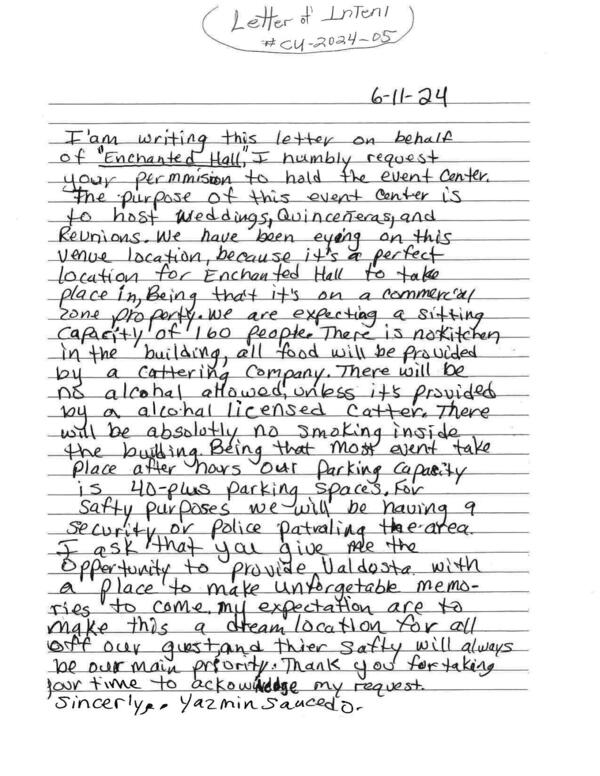 Letter of Intent
#CU-2024-05
6-11-24
I'am writing this letter on behalf
of "Enchanted Hall," I humbly request
your permmision to hold the event center.
The purpose of this event center is
to host weddings, Quinceñeras, and
Reunions. We have been eyeing on this
venue location, because it's a perfect
location for Enchanted Hall to take
place in, Being that it's on a commercial
zone property. We are expecting a sitting
capacity of 160 people. There is no kitchen
in the building, all food will be provided
by a cattering company. There will be
no alcohal allowed, unless it's provided
by a alcohal licensed catter. There
will be absolutly no smoking inside
the building. Being that most event take
place after hours our parking capacity
is 40-plus parking spaces. For
safty purposes we will be having a
security or police patroling the area.
I ask that you give me the
opportunity to provide Valdosta with
a place to make unforgetable memo-
ries to come. my expectation are to
make this a dream location for all
off our guest, and thier safty will always
be our main priority. Thank you for taking
your time to ackowledge my request.
Sincerly,. Yazmin Saucedo.